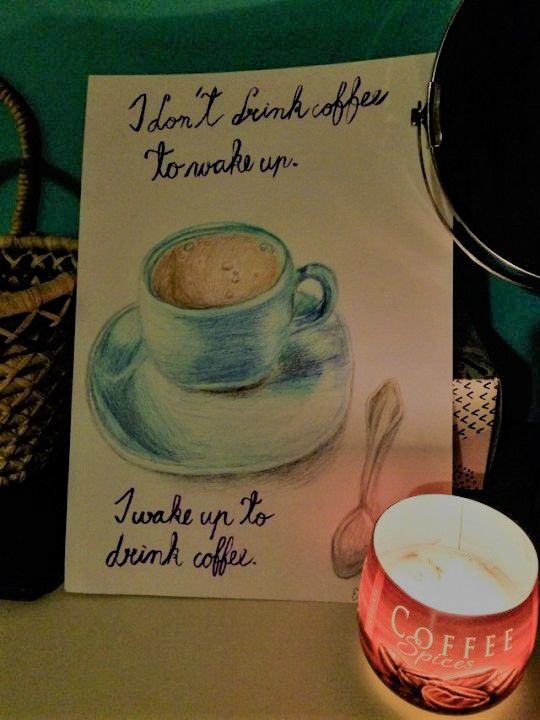 I don't drink coffee
to wake up.
I wake up to
drink coffee.
COFFEE
Spices